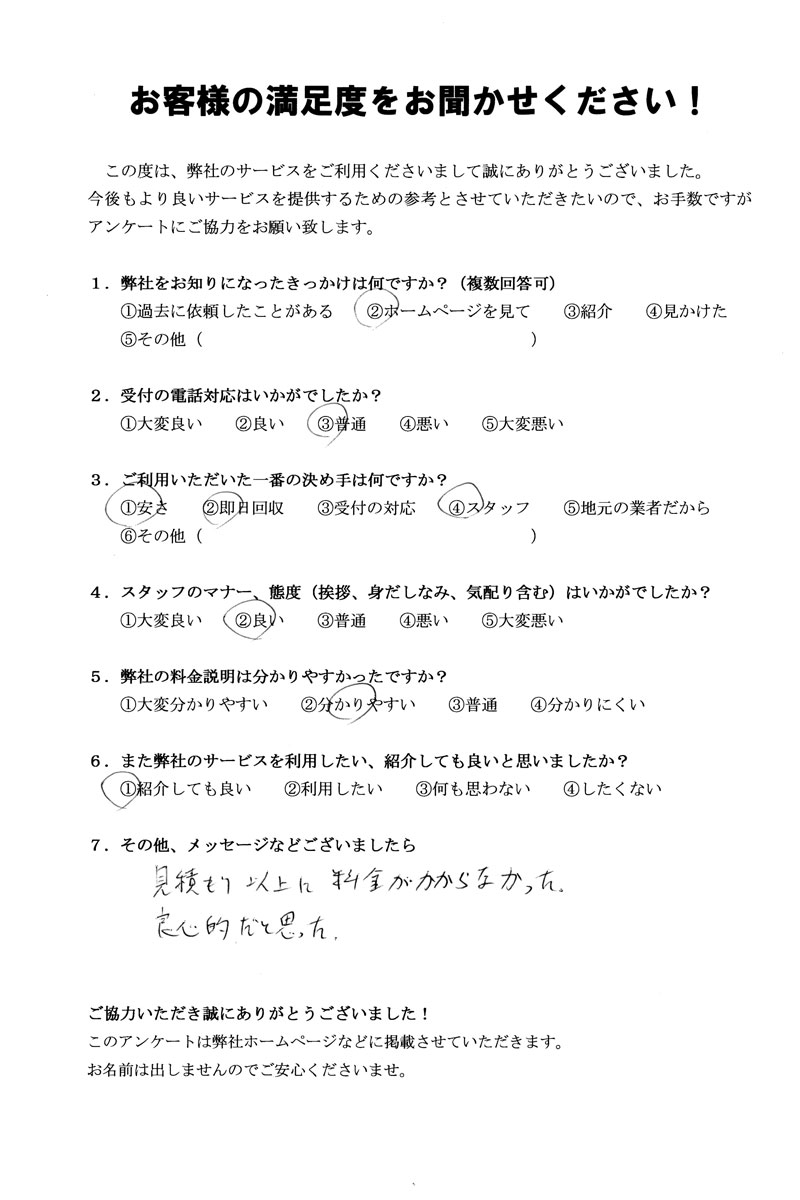 お客様の満足度をお聞かせください！
この度は、弊社のサービスをご利用くださいまして誠にありがとうございました。
今後もより良いサービスを提供するための参考とさせていただきたいので、お手数ですが
アンケートにご協力をお願い致します。
１．弊社をお知りになったきっかけは何ですか？（複数回答可）
①過去に依頼したことがある　②ホームページを見て　③紹介　④見かけた
⑤その他（　　　　　　　　　　　　　　　　　　　　）
２．受付の電話対応はいかがでしたか？
①大変良い　②良い　③普通　④悪い　⑤大変悪い
３．ご利用いただいた一番の決め手は何ですか？
①安さ　②即日回収　③受付の対応　④スタッフ　⑤地元の業者だから
⑥その他（　　　　　　　　　　　　　　　　　　　　）
４．スタッフのマナー、態度（挨拶、身だしなみ、気配り含む）はいかがでしたか？
①大変良い　②良い　③普通　④悪い　⑤大変悪い
５．弊社の料金説明は分かりやすかったですか？
①大変分かりやすい　②分かりやすい　③普通　④分かりにくい
６．また弊社のサービスを利用したい、紹介しても良いと思いましたか？
①紹介しても良い　②利用したい　③何も思わない　④したくない
７．その他、メッセージなどございましたら
見積もり以上に料金がかからなかった。
良心的だと思った。
ご協力いただき誠にありがとうございました！
このアンケートは弊社ホームページなどに掲載させていただきます。
お名前は出しませんのでご安心くださいませ。